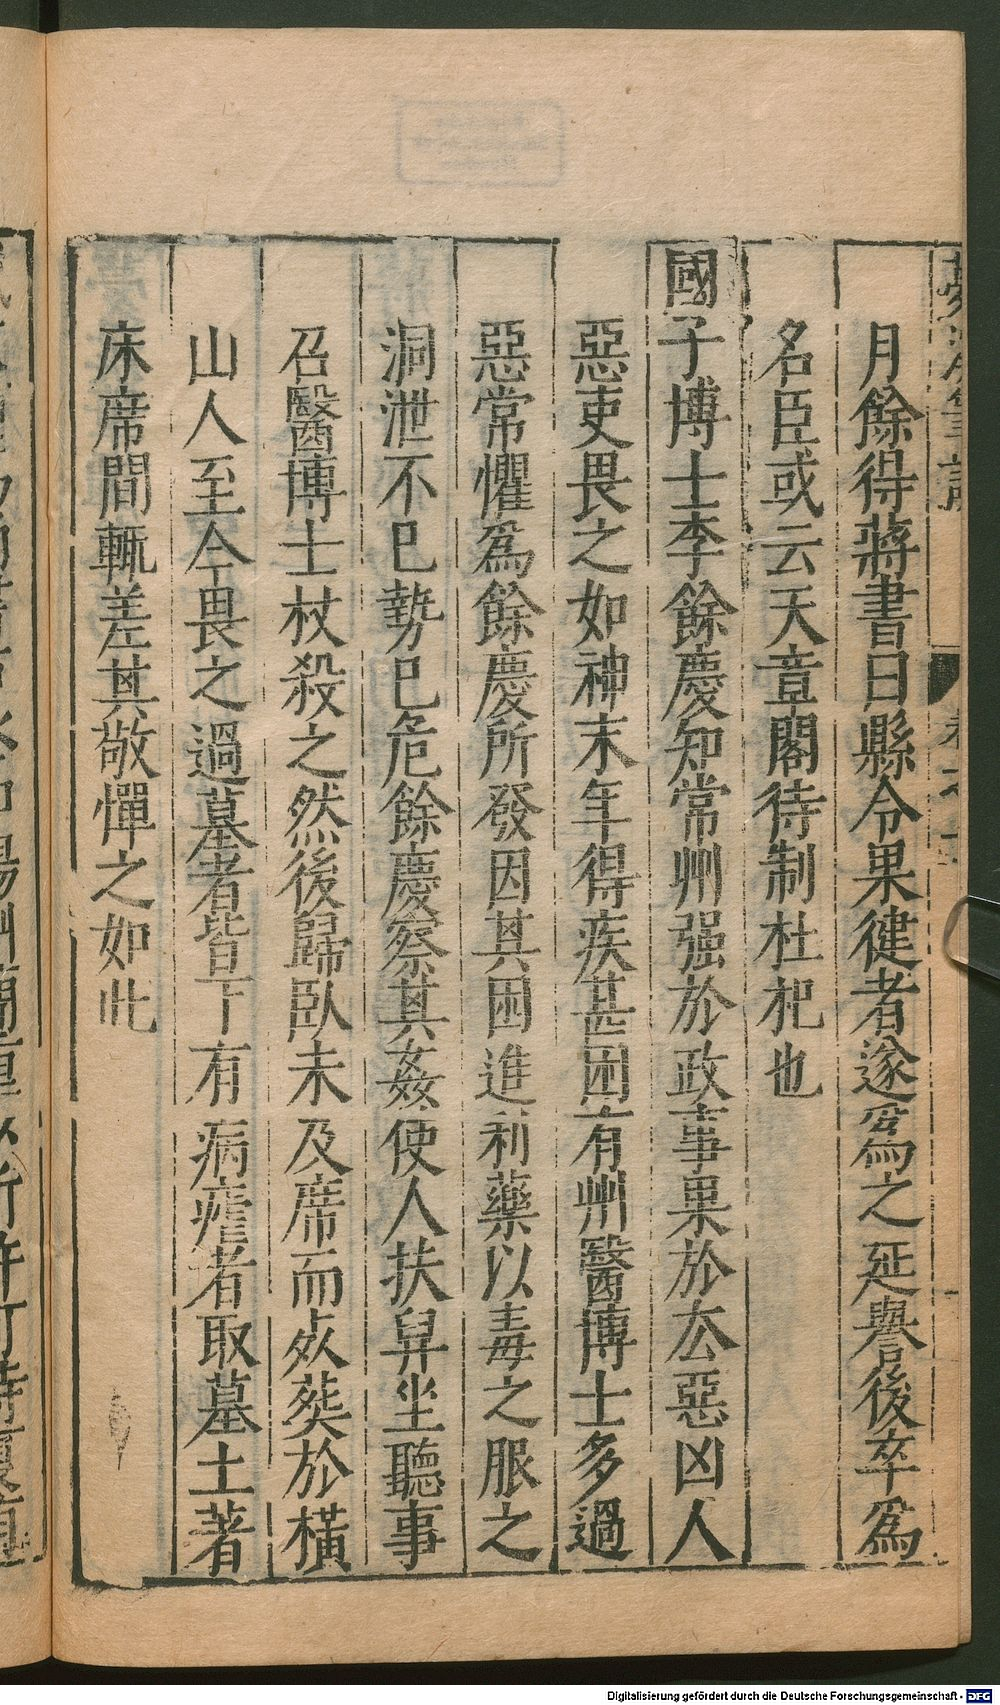 月餘得蔣書曰縣令果健者遂爲之延譽後卒爲
名臣或云天章閣待制杜杞也
國子博士李餘慶知常州强於政事果於厺惡凶人
惡吏畏之如神末年得疾甚困有州醫博士多過
惡常懼爲餘慶所發因其困進利藥以毒之服之
洞泄不已勢已危餘慶察其姦使人扶舁坐聽事
召醫博士杖殺之然後歸臥未及席而㱙葬於橫
山人至今畏之過墓者皆下有病瘧者取墓土著
床席間輒差其敬憚之如此
Digitalisierung gefördert durch die Deutsche Forschungsgemeinschaft - DFG